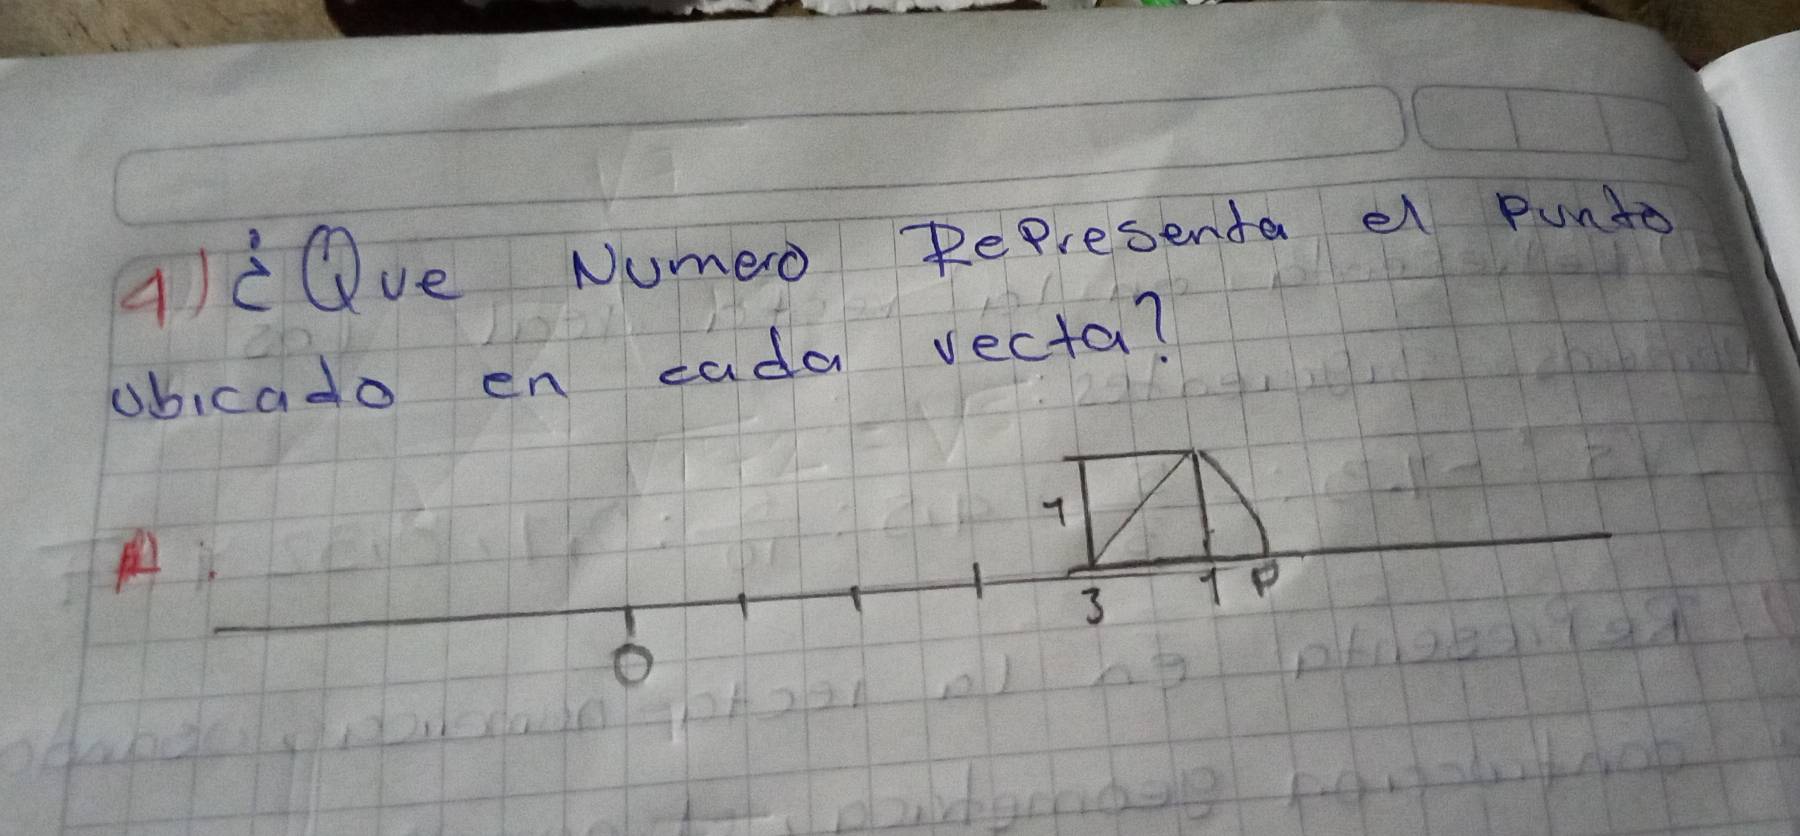 4) ¿Que Numero Representa el Punto
ubicado en cada recta?
A).
1
0
3
1 P